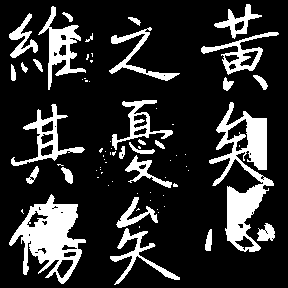 黃矣心
之憂矣
維其傷